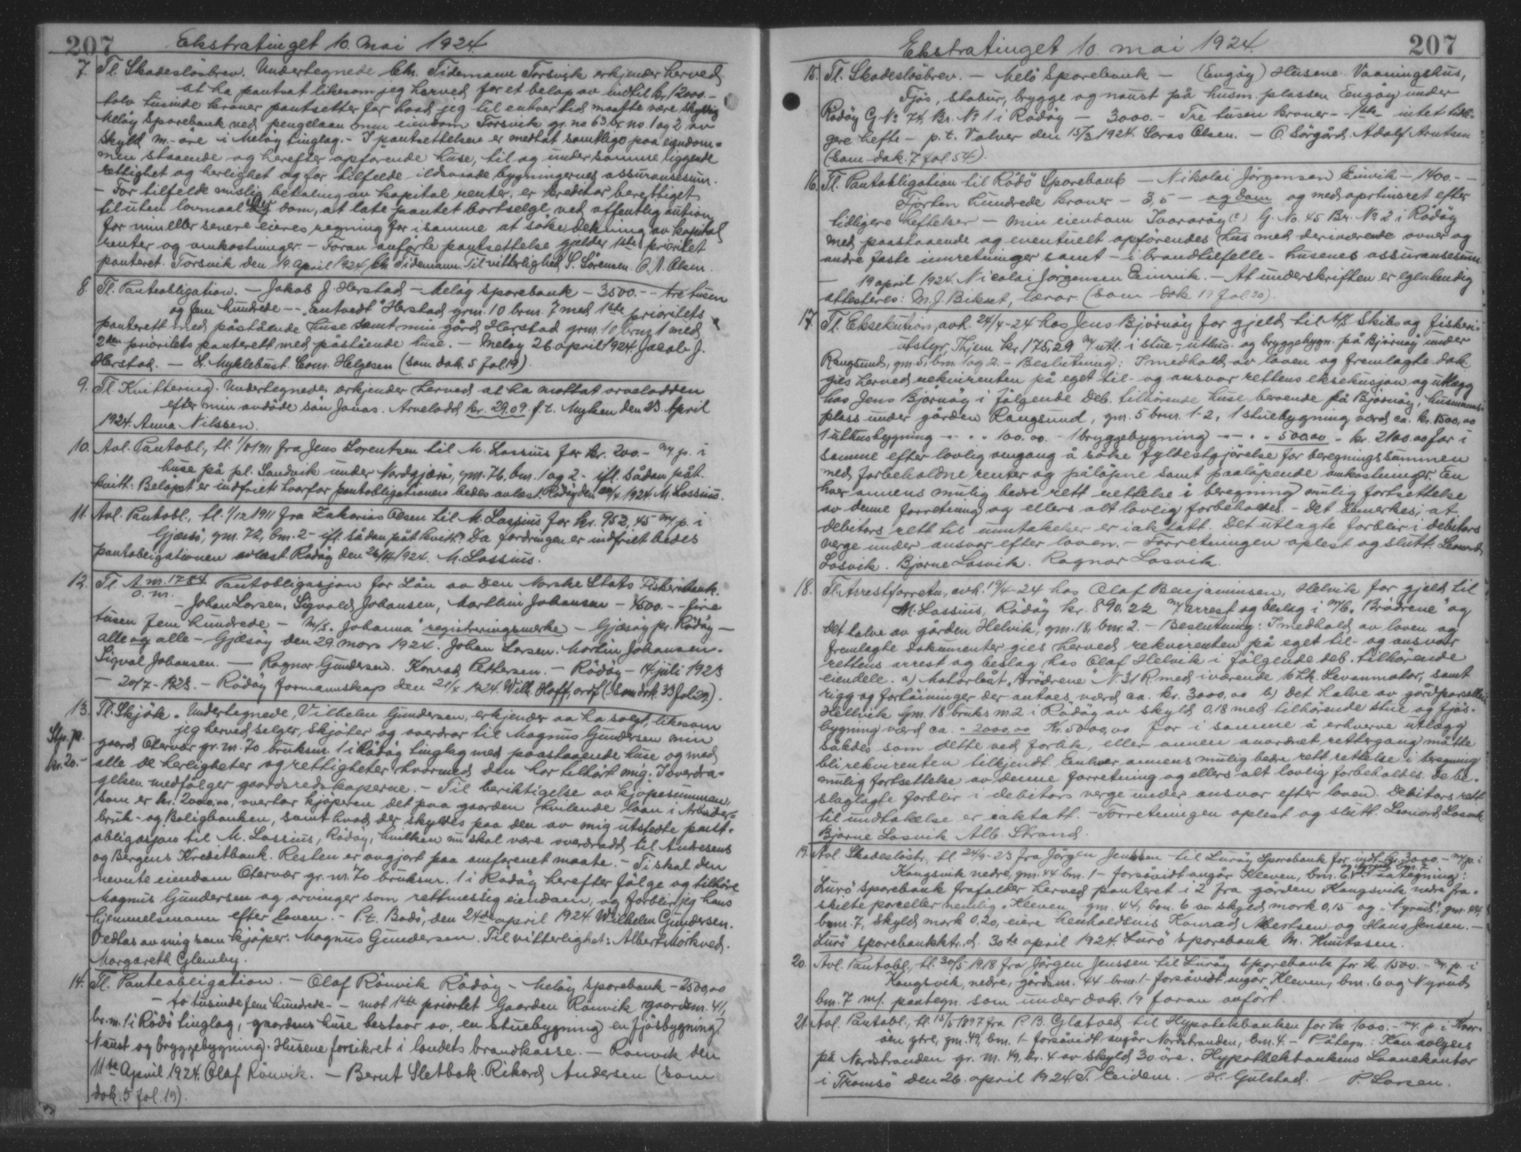 207
Ekstratinget 10. mai 1924
7 Tl. Skadesløsbrev. Undertegnede Chr. Tidemann Torsvik erkjender herved
at ha pantsat likesom jeg herved for et beløp av indtil kr. 12000 –
tolv tusinde kroner pantsetter for hvad jeg til enhver tid maatte være skyldig
Meløy Sparebank ved pengelaan min eiendom Torsvik gr. no 63 br. no. 1 og 2 av
skyld m. – øre i Meløy tinglag. – I pantsettelsen er medtat samtlige paa eiendom-
men staaende og herefter opførende huse, til og undersamme liggende
rettighet og herlighet og for tilfælde ildsvaade bygningernes assuransesum.
– For tilfælde mislig betaling av kapital renter, er kreditor berettiget
til uten lovmaal og dom, at late pantet bortselge, ved offentlig auktion,
for min eller senere eieres regning for i samme at søke dekning av kapital
renter og omkostninger – Foran anførte pantsettelse gjelder 1ste prioritet
panteret. Torsvik den 19 april 1924 Chr. Tidemann Til vitterlighet S. Sørensen
8 Tl. Panteobligation. – Jakob J. Herstad – Meløy sparebank – 3500. – – tre tusen
og fem hundrede – – Herstad grm. 10 brm. 7 med 1ste prioritets
panterett med påstående huse samt min gård Herstad grm. 10 brm. 1 med
2den prioritets panterett med påstående huse. – Meløy 26 april 1924 Jacob J.
Herstad. – L. Myklebust Edm. Helgesen (som dok. 5 fol. 19)
9. Tl Kvittering. Undertegnede erkjender herved at ha mottat arvelodden
efter min avdøde søn Jonas. Arvelodd kr. 29.09 p. t. Myken den 23 April
1924. Anna Nilssen.
10. Avl. Pantobl., tl. 1/10 1911 fra Jens Lorentsen til M. Lossius for kr. 200. – m/ p. i
huse på pl. Sandvik under Nordgjærø, gm. 76, bm. 1 og 2 – ifl. sådan påt.
kvitt. Beløpet er indfriet hvorfor pantobligationen bedes avlest Rødøy den 1924 M. Lossius.
11. Avl. Pantobl., tl. 1/12 1911 fra Zakarias Olsen til M. Lossius for kr. 952,45 m/ p. i
Gjærø, gm. 72, bm. 2 – ifl. sådan påt. kvitt. Da fordringen er indfriet bedes
pantobligationen avlest Rødøy den 26/4 1924. M. Lossius.
12. Tl. m. 1784 Pantobligasjon for Lån av Den Norske Stats Fiskeribank.
– Johan Larsen, Sigvald Johansen, Marthin Johansen – 4500 – – fire
tusen fem hundrede – M/S. "Johanna" registreringsmerke – Gjærøy pr. Rødøy –
alle og alle – Gjærøy den 29 mars 1924. Johan Larsen. Martin Johansen.
Sigval Johansen. – Ragnar Gundersen. Konrad Pettersen. – Rødøy – 14 juli 1923
– 20/7 – 1923. – Rødøy formannskap den 21/8 1924. Wilh. Hoff, ordf. (Som dok. 33 fol. 29).
13. Tl. Skjøte. Undertegnede, Vilhelm Gundersen, erkjender aa ha solgt, likesom
Stp. p.
kr. 20. –
jeg herved selger, skjøter og overdrar til Magnus Gundersen min
gaard Otervær gr. nr. 70 bruksnr. 1 i Rødøy tinglag med paastaaende huse og med
alle de herligheter og rettigheter hvormed den har tilhørt mig. I overdra-
gelsen medfølger gaardsredskaperne. – Til berigtigelse av kjøpesummen,
som er kr. 2000,00, overtar kjøperen det paa gaarden hvilende laan i Arbeider-
bruk- og Boligbanken, samt hvad der skyldes paa den av mig utstedte pant-
obligasjon til M. Lossius, Rødøy, hvilken nu skal være overdradd til Andresens
og Bergens Kreditbank. Resten er avgjort paa omforenet maate. – Ti skal den
nevnte eiendom Otervær gr. nr. 70 bruksnr. 1 i Rødøy herefter følge og tilhøre
Magnus Gundersen og arvinger som rettmessig eiendom, og forblir jeg hans
hjemmelsmann efter loven. – P.t. Bodø, den 24de april 1924 Wilhelm Gundersen.
Vedtas av mig som kjøper: Magnus Gundersen. Til vitterlighet: Albert Mørkved.
Margareth Glemby.
14. Tl. Panteobligation. – Olaf Rönvik Rödöy – Meløy sparebank – 2500,00
– to tusinde fem hundrede – – mot 1ste prioritet Gaarden Rönvik gaardsnr. 41,
br. nr. 1 i Rödö tinglag, gaardens huse bestaar av, en stuebygning en fjösbygning
Naust og bryggebygning. Husene forsikret i landets brandkasse. – Ronvik den
11te April 1924 Olaf Rönvik. – Bernt Sletbak. Rikard Andersen (som
dok. 5 fol. 19).
207
Ekstratinget 10. mai 1924
15. Tl. Skadesløsbrev. – Melö Sparebank – (Engøy) Husene Vaaningshus,
Fjøs, stabur, brygge og naust på husm. plassen Engøy under
Rødøy G. No 74, Br. No 1 i Rødøy – 3000. – Tre tusen kroner – 1ste – intet tidli-
gere hefte – p. t. Valvær den 15/3 1924. Olsen. – O. Sörgård. Adolf Arntsen
(som dok. 7 fol. 54).
16. Tl. Pantobligation til Rödö Sparebank – Nikolai Jörgensen Einvik – 1400. –
Fjorten hundrede kroner – og dom og med oprtinoret efter
tidligere heftelser – min eiendom G. No. 45 Br. No 2 i Rødøy
med paastaaende og eventuelt opførendes hus med derivær­ende ovner og
andre faste innretninger samt – i brandtilfelle – husenes assuransesum
– 19 april 1924. Nicolai Jörgensen Einvik – At underskriften er egenhendig
attesteres: M. J. Bikset, lærer (som dok 17 fol 20).
17. Tl. Eksekution, avh. 24/4-24 hos Jens Bjørnøy for gjeld til A/S Skibs og fiskeri-
utstyr, Thjem kr. 175,29 m/ utl. i stue- uthus- og bryggebygn. på Bjørnøy under
Rangsund, gm. 5, bm. 1 og 2. – Beslutning: I medhold av loven og fremlagte dok
gis herved rekvirenten på eget til- og ansvar rettens eksekusjon og utlegg
hos Jens Bjørnøy i følgende deb. tilhørende huse beroende på Bjørnøy, husmanns-
plass under gården Rangsund, gm. 5 brm. 1-2, 1 stuebygning værd ca. kr. 1500,00
1 uthusbygning – " " 100.00. – 1 bryggebygning – " – " 500.00 – kr. 2100.00 for i
samme efter lovlig omgang å söke fyldestgjørelse for beregningssummen
med forbeholdne renter og påløpne samt paaløpende omkostninger. En
hver annens mulig bedre rett rettelse i beregning mulig fortsettelse
av denne forretning og ellers alt lovlig forbeholdes. – Det bemerkes, at
debitors rett til unntakelser er iakttatt. Det utlagte forblir i debitors
verge under ansvar efter loven. – Forretningen oplest og slutt. Leonard
Lasvik. Bjarne Lasvik. Ragnar Lasvik.
18. Tl. Arrestforretn., avh. 19/4-24 hos Olaf Benjaminsen, Helvik for gjeld til
M. Lossius, Rødøy kr. 890,22 m/ arrest og beslag i m/b. "Brødrene" og
det halve av gården Helvik, gm. 18, bm. 2. – Beslutning: I medhold av loven og
fremlagte dokumenter gies herved rekvirenten på eget til- og ansvar
rettens arrest og beslag hos Olaf Helvik i følgende deb. tilhørende
eiendele: a) Motorbåt, Brødrene N 31 R med iværende 6 hk. Levanmotor, samt
rigg og fortøininger der antaes værd ca. kr. 3000,00 b) det halve av gårdparsellen
Hellvik gm. 18 bruks nr. 2 i Rødøy av skyld 0,18 med tilhørende stue og fjös-
bygning værd ca. – 2000,00 Kr. 5000,00 for i samme å erhverve utlegg
såfremt som dette ved forlik, eller annen anordnet rettergang måtte
bli rekvirenten tilkjendt. Enhver annens mulig bedre rett rettelse i beregning
mulig fortsettelse av denne forretning og ellers alt lovlig forbeholdes. De be-
slaglagte forblir i debitors verge under ansvar efter loven. Debitors rett
til undtakelse er iakttatt. – Forretningen oplest og slutt. Leonard Lasvik
Bjarne Lasvik Alb. Strand.
19. Avl Skadeslösbr., tl. 24/9-23 fra Jörgen Jenssen til Lurøy Sparebank for indt. kr. 3000. – m/ p. i
Kongsvik nedre, gm. 44 bm. 1 – forsåvidt angår Kleven, bm. 6 – Påtegning:
Lurö sparebank frafaller herved panteret i 2 fra gården Kongsvik nedre fra-
skilte parceller nemlig "Kleven" gm. 44, bm. 6 av skyld mark 0,15 og "Nyrud" gm. 44
bm. 7, skyld mark 0,20, eiere henholdsvis Konrad Albertsen og Hans Jensen. –
Lurö sparebankktr. d. 30te april 1924. Lurö Sparebank M. Knutssen.
20. Avl. Pantobl., tl. 30/5 1918 fra Jörgen Jenssen til Lurøy sparebank for kr 1500. – m/ p. i
Kongsvik, nedre, gårdsm. 44 brm. 1 – forsåvidt angår Kleven, bm. 6 og Nyrud
bm. 7 m/ pantegn. som under dok. 19 foran anført.
21. Avl. Pantobl., tl. 15/6 1897 fra P. B. Glatved til Hypotekbanken for kr 1000. – m/ p. i
gm. 49, bm. 1 – forsåvidt angår Nordstranden, bm. 4 – Påtegn. Kan avlyses
på Nordstranden gr. m. 49, br. 4 av skyld 30 öre. Hypothekbankens Laanekontor
i Tromsö den 26. april 1924 T. Eidem. H. Gulstad. P. Larsen.